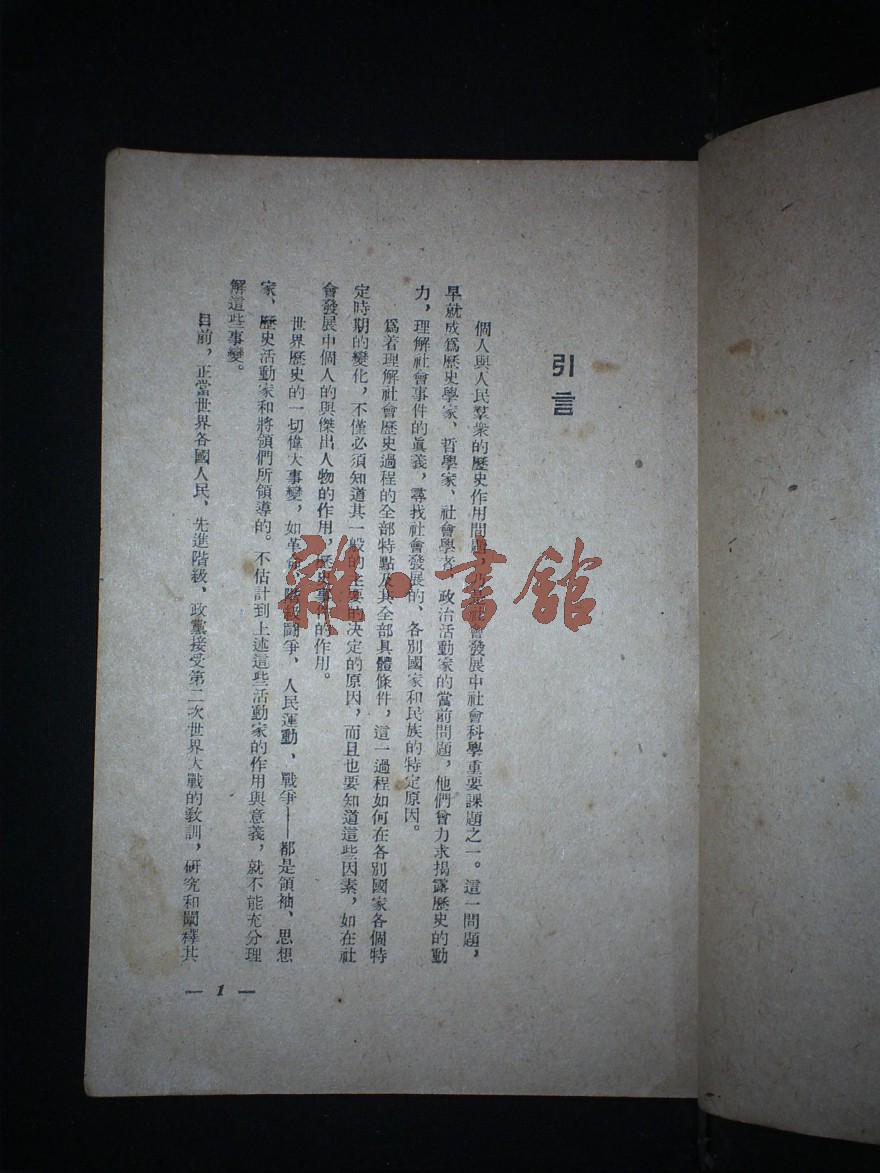 引言
個人與人民羣衆的歷史作用問題，乃是社會發展中社會科學重要課題之一。這一問題，
早就成爲歷史學家、哲學家、社會學者、政治活動家的當前問題，他們會力求揭露歷史的動
力，理解社會事件的眞義，尋找社會發展的、各別國家和民族的特定原因。
爲着理解社會歷史過程的全部特點及其全部具體條件，這一過程如何在各別國家各個特
定時期的變化，不僅必須知道其一般的主要的決定的原因，而且也要知道這些因素，如在社
會發展中個人的與傑出人物的作用，歷史事件的作用。
世界歷史的一切偉大事變，如革命、階級鬪爭、人民運動、戰爭——都是領袖、思想
家、歷史活動家和將領們所領導的。不估計到上述這些活動家的作用與意義，就不能充分理
解這些事變。
目前，正當世界各國人民、先進階級、政黨接受第二次世界大戰的敎訓，硏究和闡釋其
— 1 —
雜·書館